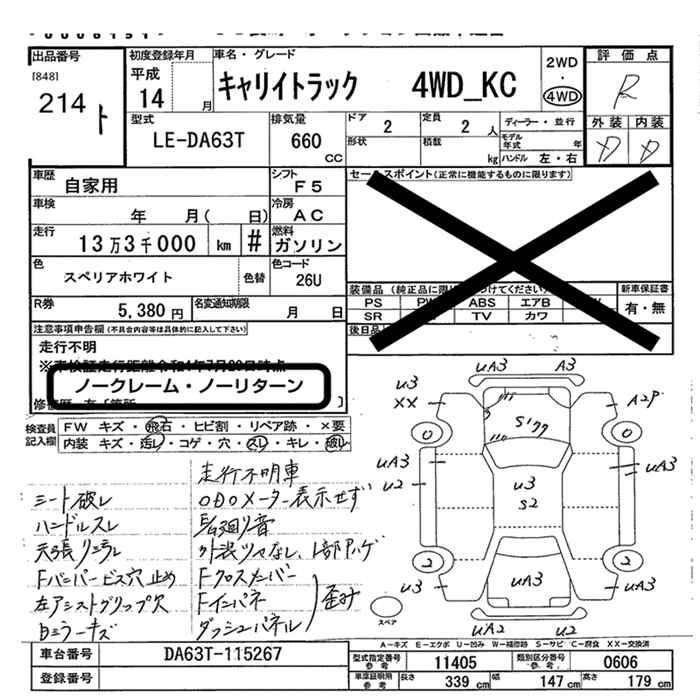 出品番号
[848]
214 ト
初度登録年月
平成
14 月
車名・グレード
キャリイトラック 4WD_KC
2WD
・
4WD
評価点
R
外装 内装
D D
型式
LE-DA63T
排気量
660
CC
ドア 2
定員 2 人
ディーラー・並行
形状
積載 kg
モデル年式 年
ハンドル 左・右
車歴 自家用
シフト F5
車検 年 月( 日)
冷房 AC
走行 13万3千000 km #
燃料 ガソリン
色 スペリアホワイト 色替
色コード 26U
R券 5,380円
名変通知期限 月 日
セールスポイント(正常に機能するものに限ります)
装備品
新車保証書
PS ABS エアB
有・無
SR TV カワ
後日品
注意事項申告欄(不具合内容等は具体的に記入して下さい)
走行不明
※車検証走行距離令和4年7月20日時点
ノークレーム・ノーリターン
検査員記入欄
FW キズ・飛石・ヒビ割・リペア跡・×要
内装 キズ・汚レ・コゲ・穴・スレ・キレ・破レ
走行不明車
シート破レ ODOメーター表示せず
ハンドルスレ 足廻り音
天張り汚レ 外装ツヤなし、1部アハゲ
Fバンパービス穴止め Fクロスメンバー
左アシストグリップ穴 Fインパネ 歪み
Bミラーキズ ダッシュパネル
UA3 A3
U3
XX A2P
S1 クク
0 0
UA3 UA3
U2
U3
S2
2 2
UA3
U3 UA3
スペア
UA2 U2
A-キズ E-エクボ U-凹み W-補修跡 S-サビ C-腐食 XX-交換済
車台番号 DA63T-115267
登録番号
型式指定番号 参考 11405
類別区分番号 参考 0606
車庫証明用 参考 長さ 339 cm 幅 147 cm 高さ 179 cm